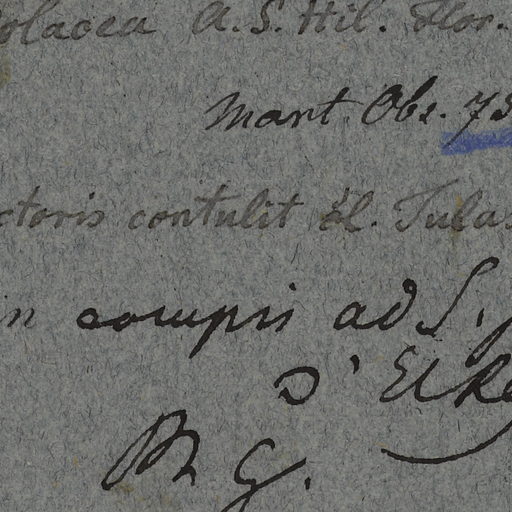 olacea A. S. Hil. Flor.
Mart. Obs. 73
ctoris contulit El. Tulas
in campis ad S.
D'
M G.